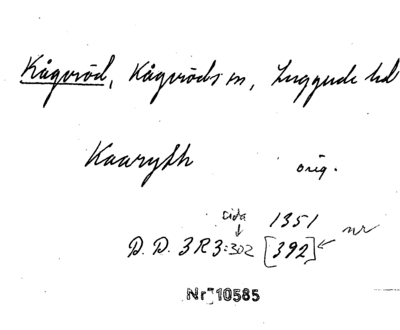 Kågeröd, Kågeröds sn, Luggude hd
Kaaryth orig.
sida 1351
D. D. 3R3:302 [392] ← nr
Nr 10585